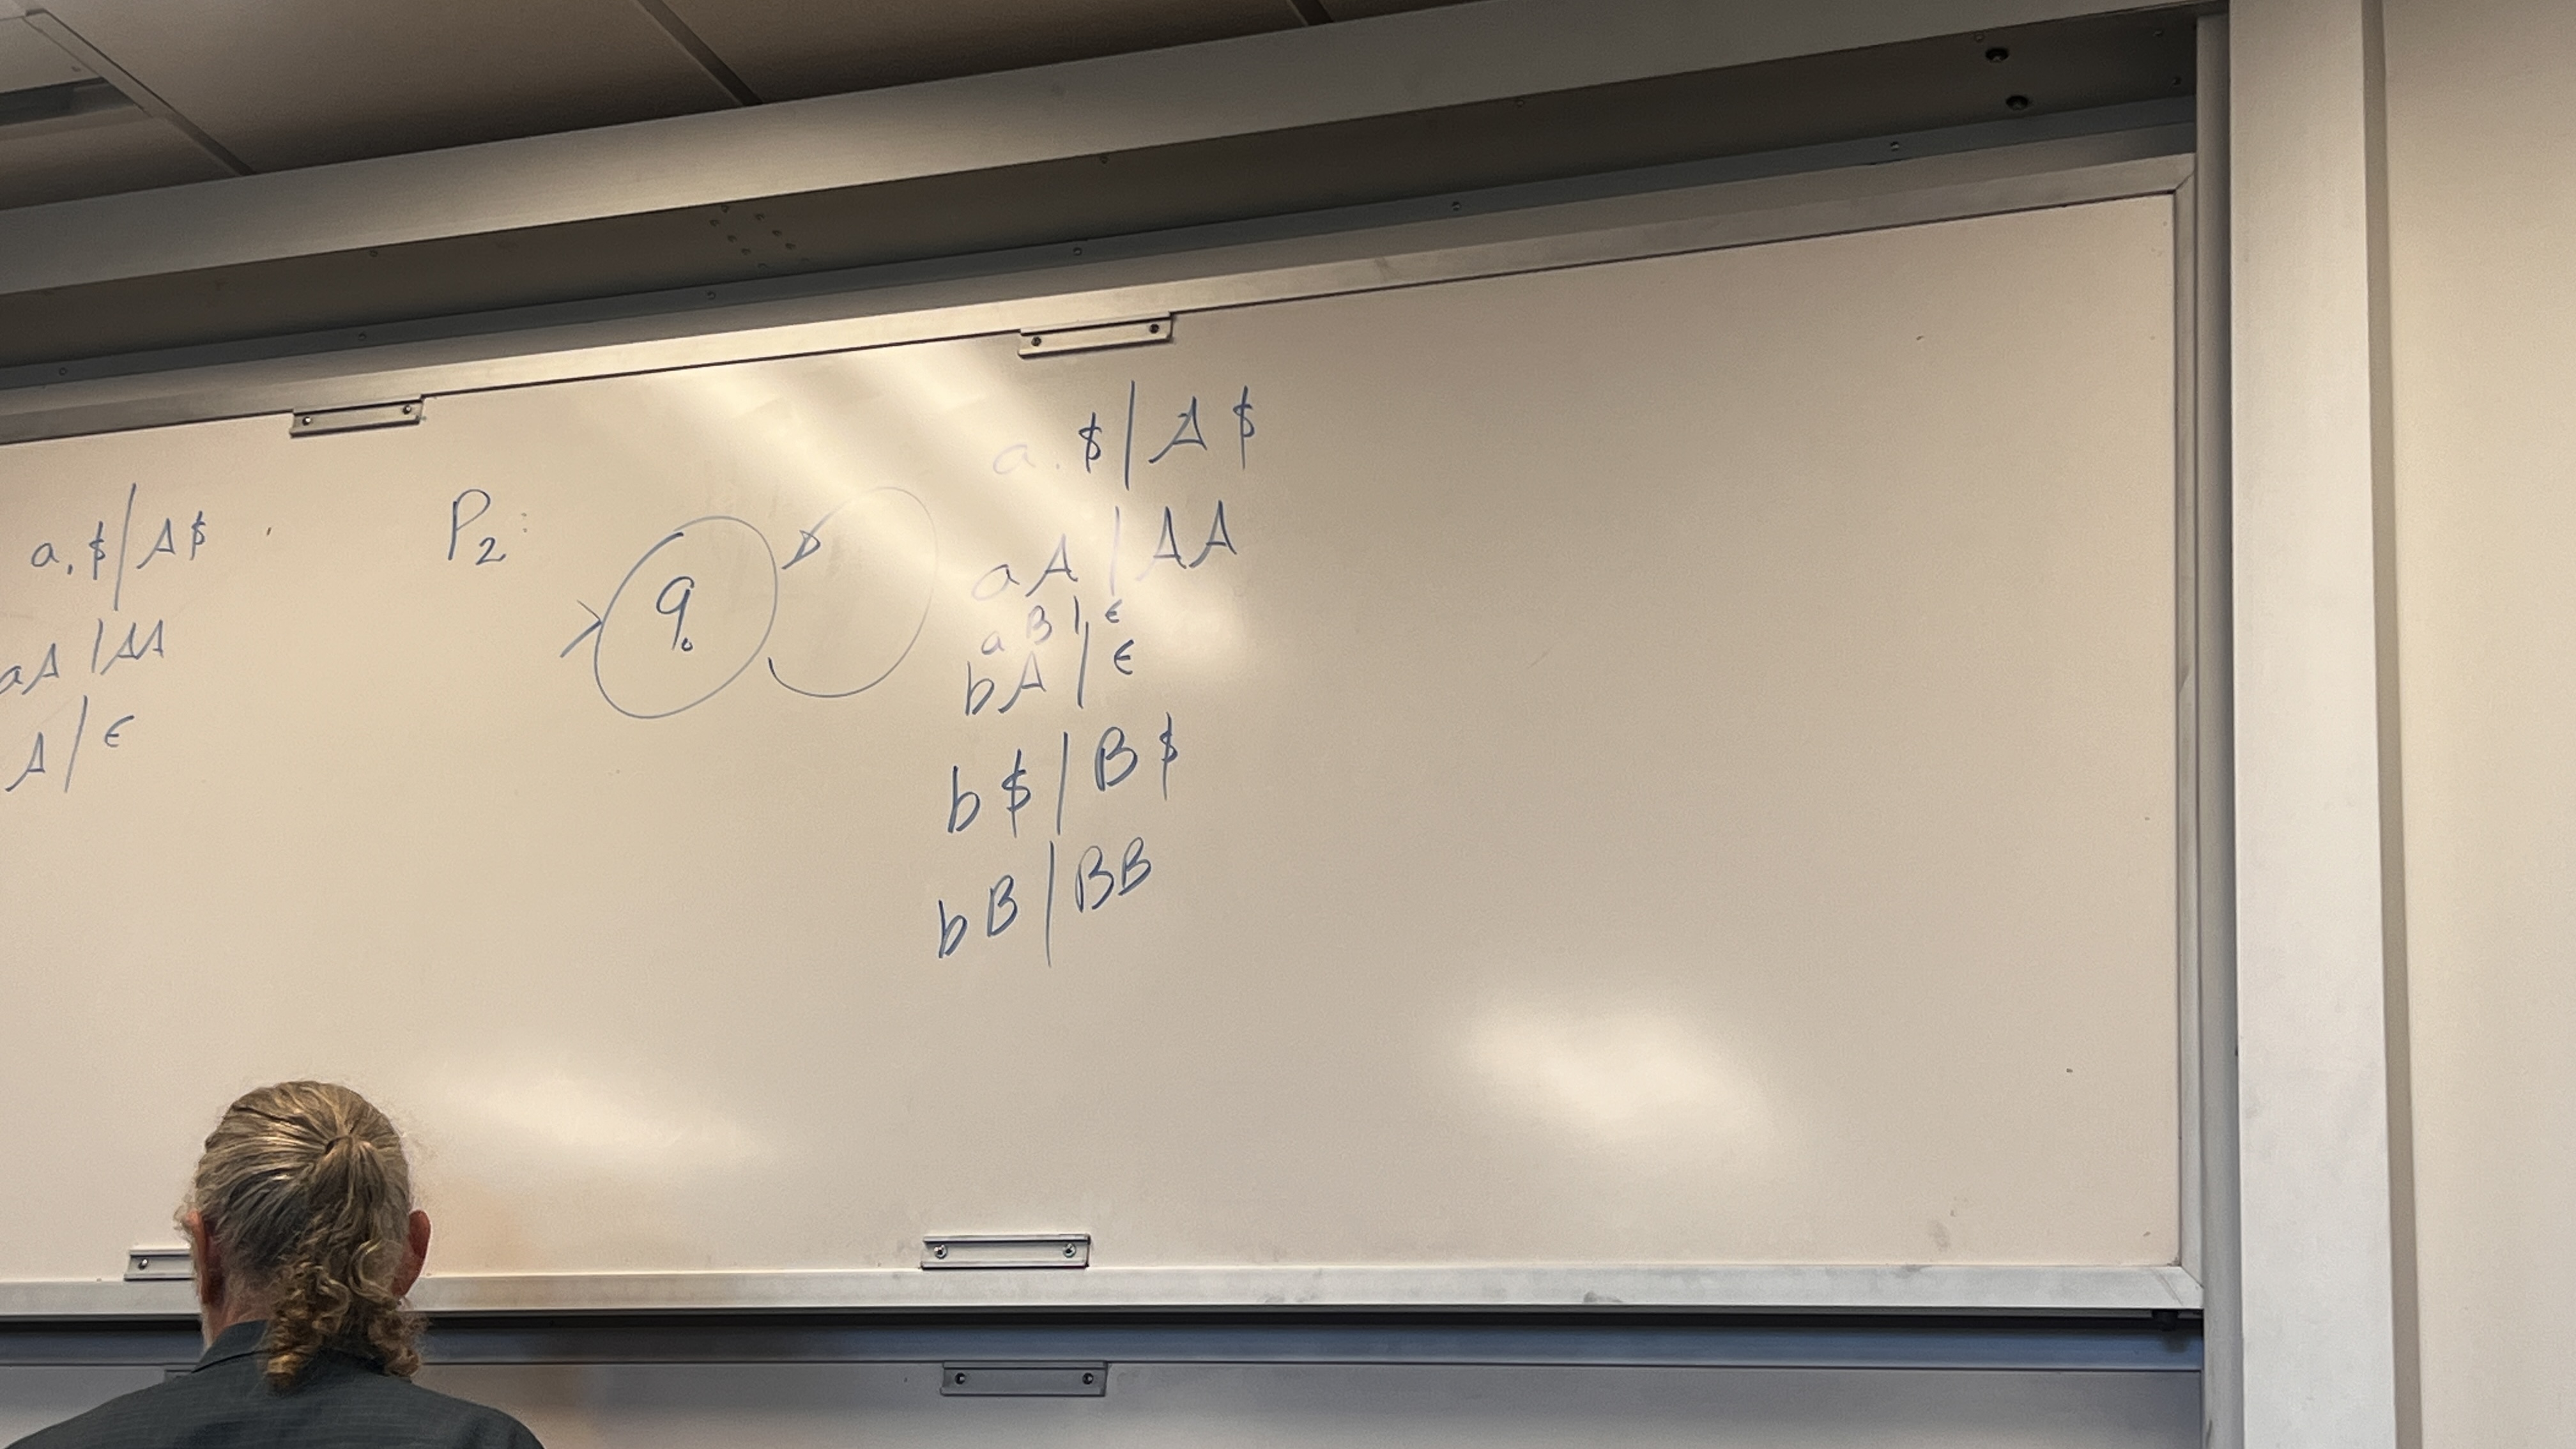 a, $ | A $
aA | AA
A | ϵ
P₂:
q₀
a, $ | A $
a A | A A
a B | ϵ
b A | ϵ
b $ | B $
b B | B B